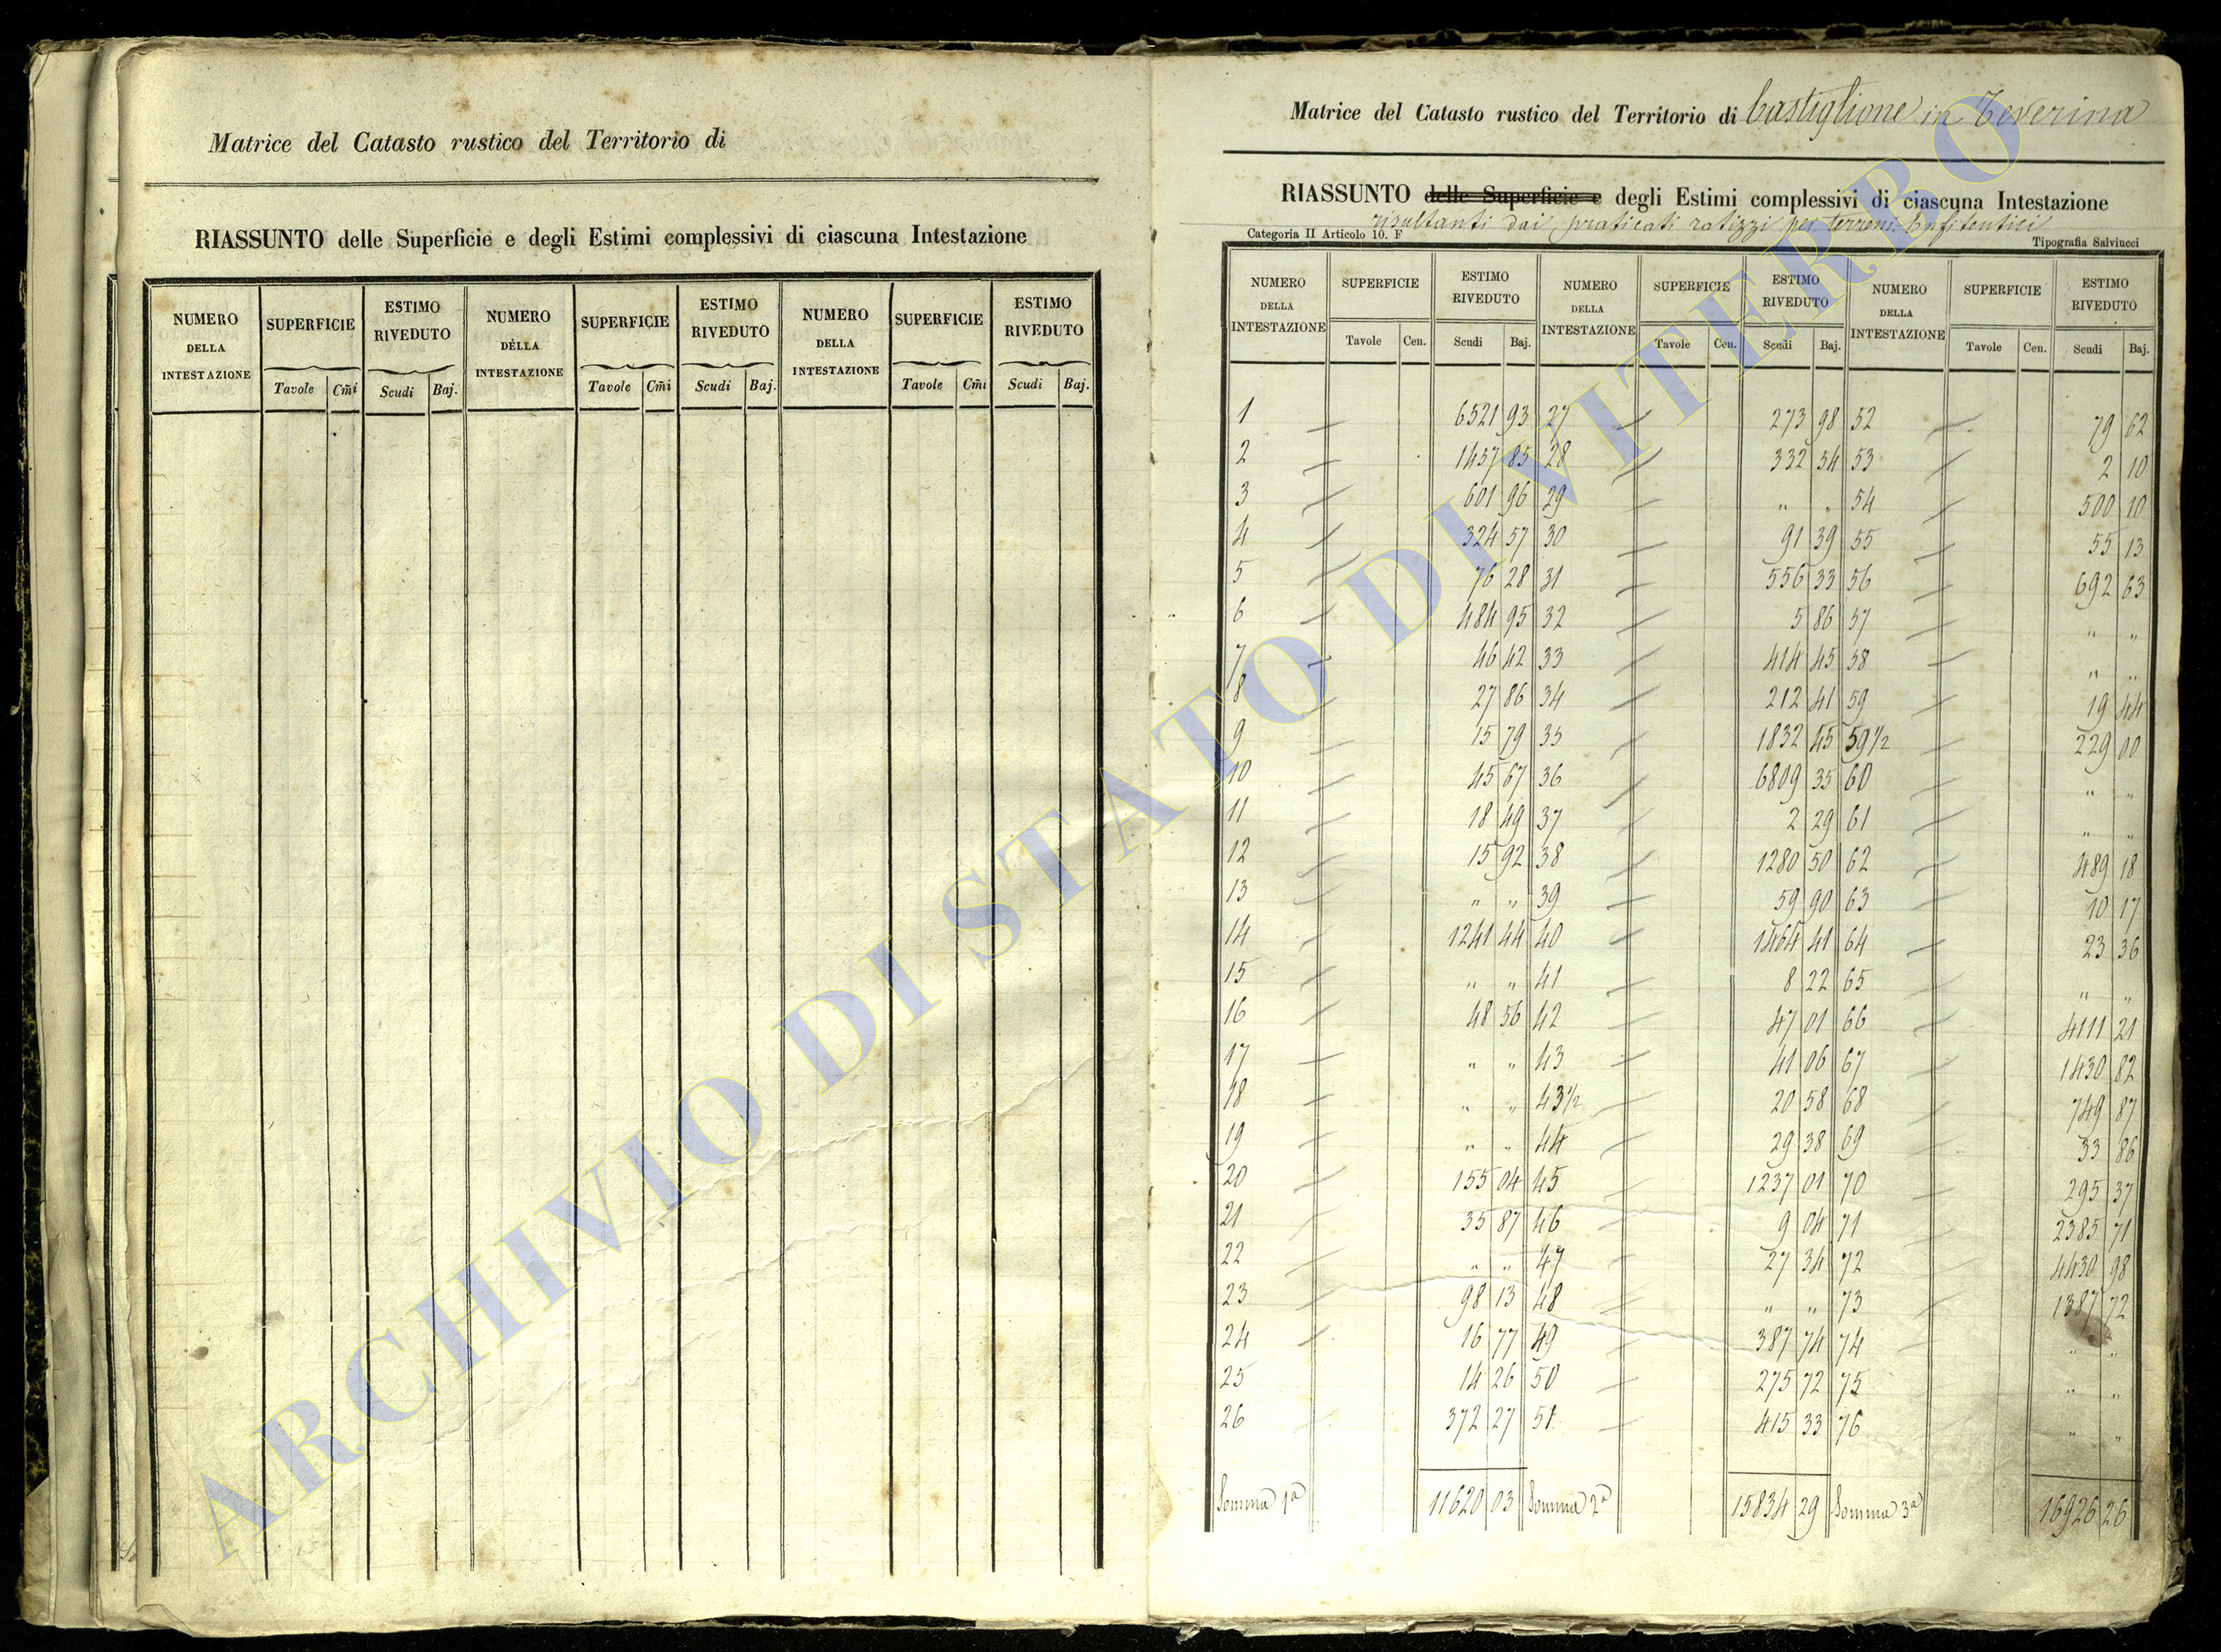 Matrice del Catasto rustico del Territorio di
RIASSUNTO delle Superficie e degli Estimi complessivi di ciascuna Intestazione
NUMERO DELLA INTESTAZIONE SUPERFICIE ESTIMO RIVEDUTO NUMERO DELLA INTESTAZIONE SUPERFICIE ESTIMO RIVEDUTO NUMERO DELLA INTESTAZIONE SUPERFICIE ESTIMO RIVEDUTO
Tavole Cm̃i Scudi Baj. Tavole Cm̃i Scudi Baj. Tavole Cm̃i Scudi Baj.
Matrice del Catasto rustico del Territorio di Castiglione in Teverina
RIASSUNTO delle Superficie e degli Estimi complessivi di ciascuna Intestazione
risultanti dai praticati ratizzi per terreni Enfiteutici
Categoria II Articolo 10. F Tipografia Salviucci
NUMERO DELLA INTESTAZIONE SUPERFICIE ESTIMO RIVEDUTO NUMERO DELLA INTESTAZIONE SUPERFICIE ESTIMO RIVEDUTO NUMERO DELLA INTESTAZIONE SUPERFICIE ESTIMO RIVEDUTO
Tavole Cen. Scudi Baj. Tavole Cen. Scudi Baj. Tavole Cen. Scudi Baj.
1 — 6521 93 27 — 273 98 52 — 79 62
2 — 1457 85 28 — 332 54 53 — 2 10
3 — 601 96 29 — " " 54 — 500 10
4 — 324 57 30 — 91 39 55 — 55 13
5 — 76 28 31 — 556 33 56 — 692 63
6 — 484 95 32 — 5 86 57 — " "
7 — 46 42 33 — 414 45 58 — " "
8 — 27 86 34 — 212 41 59 — 19 44
9 — 15 79 35 — 1832 45 59 1/2 — 229 00
10 — 45 67 36 — 6809 35 60 — " "
11 — 18 49 37 — 2 29 61 — " "
12 — 15 92 38 — 1280 50 62 — 489 18
13 — " " 39 — 59 90 63 — 10 17
14 — 1241 44 40 — 1464 41 64 — 23 36
15 — " " 41 — 8 22 65 — " "
16 — 48 56 42 — 47 01 66 — 4111 21
17 — " " 43 — 41 06 67 — 1430 82
18 — " " 43 1/2 — 20 58 68 — 749 87
19 — " " 44 — 29 38 69 — 33 86
20 — 155 04 45 — 1237 01 70 — 295 37
21 — 35 87 46 — 9 04 71 — 2385 71
22 — " " 47 — 27 34 72 — 4430 98
23 — 98 13 48 — " " 73 — 1387 72
24 — 16 77 49 — 387 74 74 — " "
25 14 26 50 — 275 72 75 " "
26 372 27 51 — 415 33 76 " "
Somma 1a 11620 03 Somma 2a 15834 29 Somma 3a 16926 26
ARCHIVIO DI STATO DI VITERBO